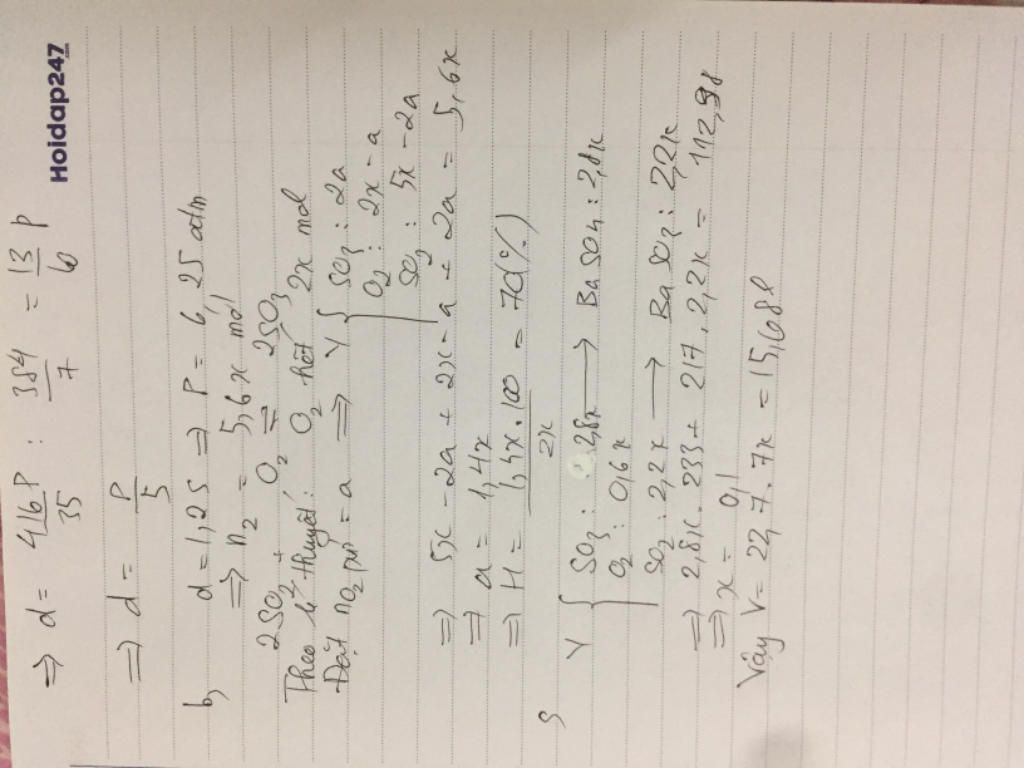 Hoidap247
⇒ d = 416P/35 : 384/7 = 13/6 P
⇒ d = P/5
b, d = 1,25 ⇒ P = 6,25 atm
⇒ n2 = 5,6x mol
2SO2 + O2 ⇌ 2SO3
Theo lí thuyết: O2 hết 2x mol
Đặt nO2 pư = a ⇒ Y { SO3 : 2a
O2 : 2x - a
SO2 : 5x - 2a
⇒ 5x - 2a + 2x - a + 2a = 5,6x
⇒ a = 1,4x
⇒ H = 1,4x.100/2x = 70(%)
Y { SO3 : 2,8x → BaSO4 : 2,8x
O2 : 0,6x
SO2 : 2,2x → BaSO3 : 2,2x
⇒ 2,8x.233 + 217.2,2x = 112,98
⇒ x = 0,1
Vậy V = 22,7.7x = 15,68l